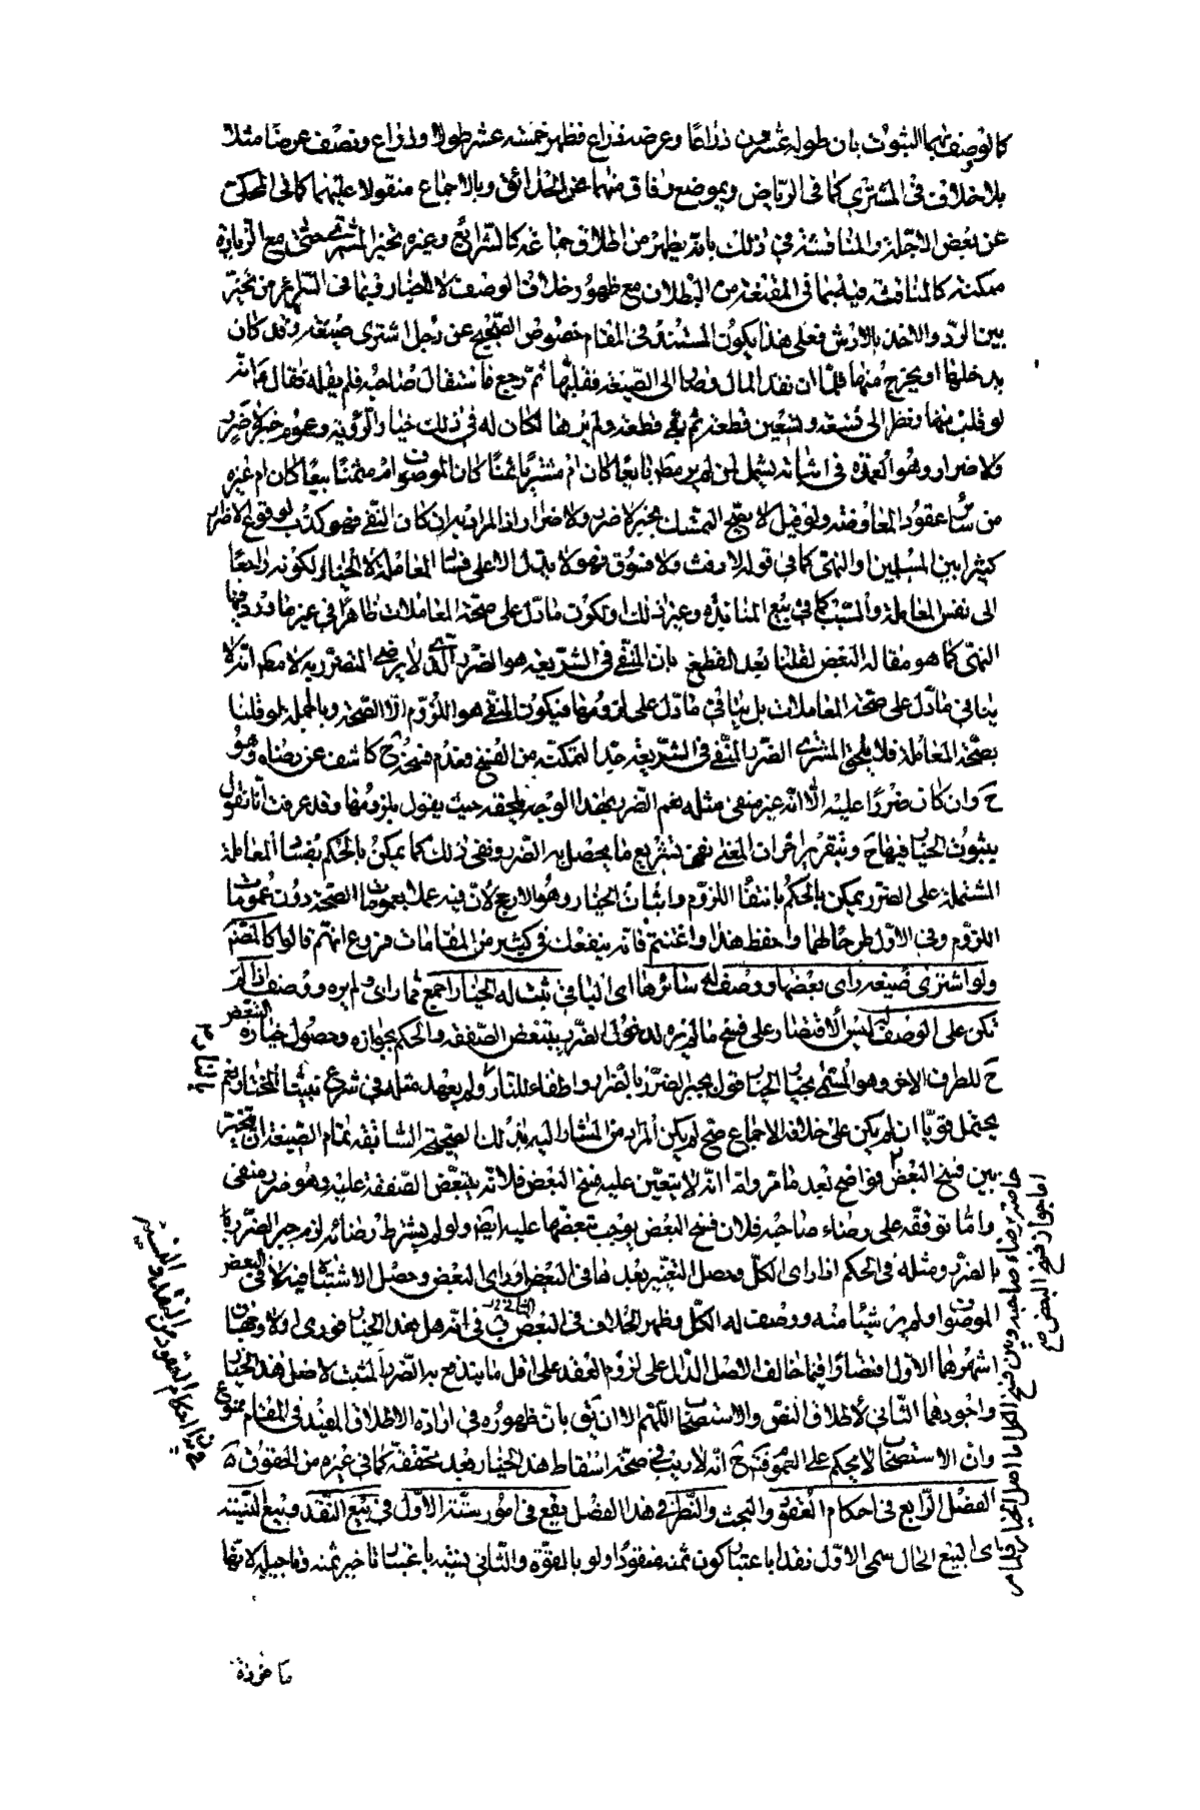 كالوصف بهما الثبوت بان طوله عشرون ذراعا وعرضه ذراع فظهر خمسة عشر طولا وذراع ونصف عرضا مثلا
بلا خلاف في المشتري كما في الرياض وبموضع وفاق منهما عن الحدائق وبالاجماع منقولا عليهما كما في المحكي
عن بعض الاجلة والمنافشة في ذلك بانه يظهر من اطلاق جماعة كالشرائع وغيره تخير المشتري حتى مع الزيادة
ممكنة كالمناقشة فيه بما في المقنعة من البطلان مع ظهور خلاف الوصف لا الخيار وبما في السرائر من تخيره
بين الرد والاخذ بالارش فعلى هذا يكون المستند في المقام خصوص الصحيح عن رجل اشترى ضيعة وقد كان
يدخلها او يخرج منها فلما ان نقد المال وصار الى الضيعة فقلبها ثم رجع فاستقال صاحبه فلم يقله فقال ع انه
لو قلب منها ونظر الى تسعة وتسعين قطعة ثم بقي قطعة ولم يرها لكان له في ذلك خيار الرؤية وعموم خبر لا ضرر
ولا ضرار وهو العمدة في اثباته يشمل لمن لم ير مط بايعا كان ام مشتريا ثمنا كان الموصوف ام مثمنا بيعا كان ام غيره
من سائر عقود المعاوضة ولو قيل لا يصح التمسك بخبر لا ضرر ولا ضرار اذ المراد به ان كان النفي فهو كذب لوقوع الاضرار
كثيرا بين المسلمين او النهي كما في قوله لا رفث ولا فسوق فهو لا يدل الا على فساد المعاملة لا الخيار لكونه راجعا
الى نفس المعاملة والسبب كما في بيع المنابذة وغير ذلك او لكون ما دل على صحة المعاملات ظاهرا في غير ما ورد فيها
النهي كما هو مقالة البعض لقلنا بعد القطع بان المنفي في الشريعة هو الضرر الذي لا يرضى المتضرر به لا مط انه لا
ينافي ما دل على صحة المعاملات بل ينافي ما دل على لزومها فيكون المنفي هو اللزوم لا الصحة وبالجملة لو قلنا
بصحة المعاملة فلا يلحق المشتري الضرر المنفي في الشريعة جدا لتمكنه من الفسخ فعدم فسخه ح كاشف عن رضاه وهو
ح وان كان ضررا عليه الا انه غير منفي مثله نعم الضرر بهذا الوجه يلحقه حيث يقول بلزومها وقد عرفت انا نقول
بثبوت الخيار فيها ح وبتقرير اخر ان المعنى نفي تشريع ما يحصل به الضرر ونفي ذلك كما يمكن بالحكم بفساد المعاملة
المشتملة على الضرر يمكن بالحكم بانتفاء اللزوم واثبات الخيار وهو الارجح لان فيه عملا بعمومات الصحة دون عمومات
اللزوم وفي الاول طرح لهما واحفظ هذا واغتنم فانه ينفعك في كثير من المقامات فروع انهم قالوا كالمصنف
ولو اشترى ضيعة راى بعضها ووصف له سائرها اى الباقي ثبت له الخيار اجمع فيما راى ولم يره ووصف اذا لم
تكن على الوصف ليس الاقتصار على فسخ ما لم يره لدخول الضرر بتبعض الصفقة والحكم بجوازه وحصول خيار التبعض
ح للطرف الاخر وهو المسمى بخيار الخيار قول بجبر الضرر بالضرار واطفاء للنار ولم يعهد مثله في شرع نبينا المختار نعم
بالنار م
يحتمل قويا ان لم يكن على خلافه الاجماع صح لم يكن المراد من المشار اليه بذلك الصحيحة السابقة تمام الضيعة ان يتخير
بين فسخ البعض فواضح بعد ما مر وله انه لا يتعين عليه فسخ البعض فلانه يتبعض الصفقة عليه وهو ضرر منفي
واما توقفه على رضاء صاحبه فلان فسخ البعض يوجب تبعضها عليه ايضا ولو لم يشترط رضائه لزم جبر الضرر
بالضرر ومثله في الحكم اذا راى الكل وحصل التغيير بعدها في البعض او راى البعض وحصل الاشتباه فيه لا في البعض
الموصوف او لم ير شيئا منه ووصف له الكل وظهر الخلاف في البعض الثاني في انه هل هذا الخيار فوري او لا وجهان
اشهرهما الاول اقتصارا فيما خالف الاصل الدال على لزوم العقد على اقل ما يندفع به الضرر المثبت لاصل هذا الخيار
واجودهما الثاني لاطلاق النص والاستصحاب اللهم الا ان يقال بان ظهوره في ارادة الاطلاق المفيد في المقام ممنوع
وان الاستصحاب لا يحكم على العموم فتدبر ثم انه لا ريب في صحة اسقاط هذا الخيار بعد تحققه كما في غيره من الحقوق
الفصل الرابع في احكام العقود والبحث والنظر في هذا الفصل يقع في امور ستة الاول في بيع النقد وبيع النسيئة
اى البيع الحال سمى الاول نقدا باعتبار كون ثمنه منقودا ولو بالقوة والثاني نسيئة باعتبار تاخير ثمنه وتاجيله لانها
ماخوذة
اما جواز فسخ البعض مع
خاصة برضاء صاحبه وبين فسخ الكل اما اصل الخيار فلما مر
في احكام العقود من النقد والنسيئة